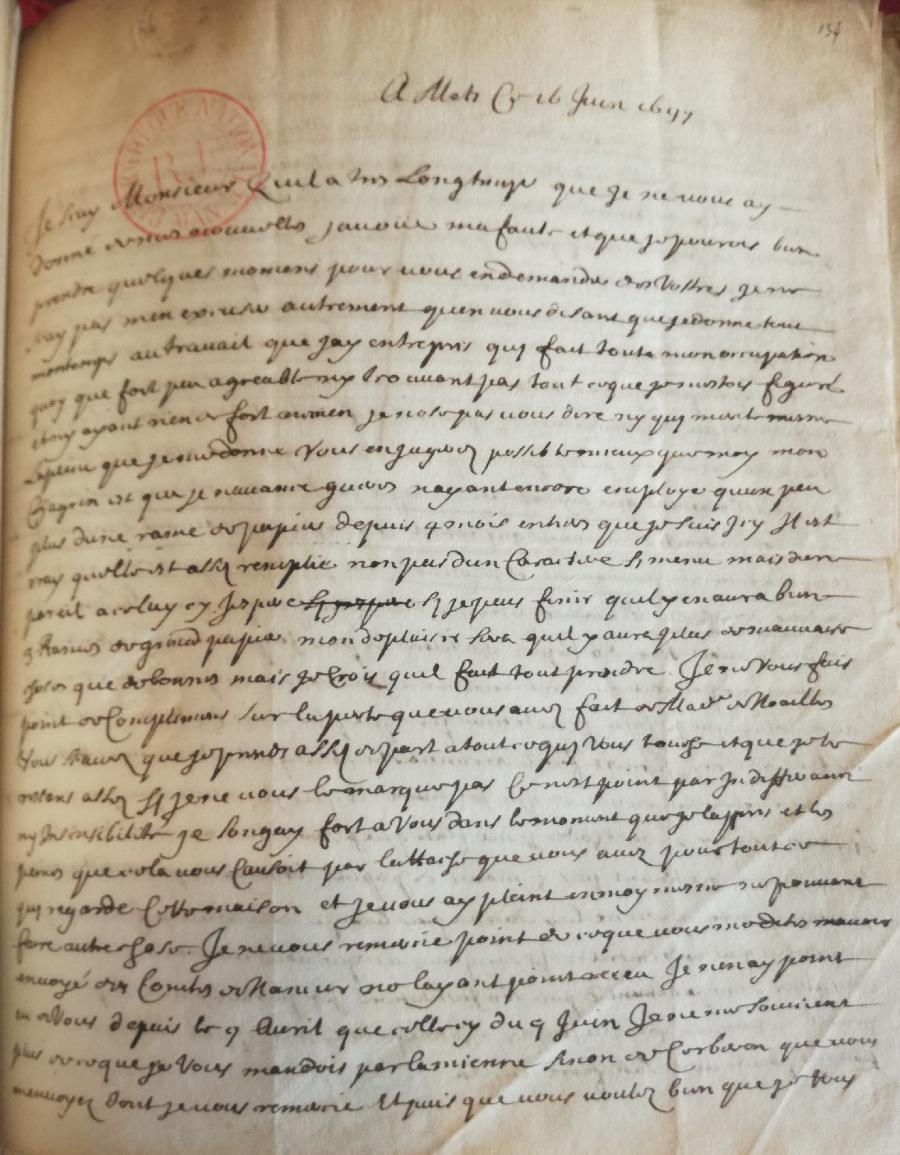 134
A Mets Ce 16 Juin 1697
BIBLIOTHEQUE NATIONALE R.F.
Je sray Monsieur Quil a tres Longtemps que Je ne vous ay
donne de mes nouvelles javoüe ma faute et que je pourois bien
prendre quelques momens pour vous en demander des Vostres Je ne
sray pas men excuser autrement quen vous disant que je donne tout
mon temps au travail que Jay entrepris qui fait toute mon occupation
quoy que fort peu agreable ny trouvant pas tout ce que je mestois figuré
et ny ayant rien de fort je nose pas vous dire ny qui merite
La peine que je me donne Vous en jugerez possible mieux que moy mon
Chagrin est que je navance gueres nayant encore employé quun peu
plus dune rame de papier depuis 4 mois entiers que Je suis Icy Il est
vray quelle est assez remplie non pas dun Caractere si menu mais dun
pareil a celuy cy Jespere si jespere si je peus finir quil y en aura bien
3 Rames de grand papier mon deplaisir sera quil y aura plus de mauvaises
choses que de bonnes mais je Crois quil faut tout prendre. Je ne Vous fais
point de Complimens sur la perte que vous avez fait de Made de Noailles
Vous savez que je prends assez de part a tout ce qui Vous touche et que je le
ressens assez si je ne vous le marque pas Ce nest point par Indifferance
ny Insensibilité je songay fort a Vous dans le moment que je lappris et les
peines que cela vous Causoit par lattache que vous avez pour tout ce
qui regarde Cette maison et je vous ay pleint en moy mesme ne pouvant
faire autre chose. Je ne vous remercie point de ce que vous me dites mavoir
envoyé des Comtes de Namur ne layant point receu Je nenay point
eu de Vous depuis le 9 Avril que celle cy du 9 Juin Je ne me souviens
plus de ce que je Vous mandois par la mienne sinon de Corberon que vous
menvoyez dont je vous remercie Et puis que vous voulez bien que je Vous